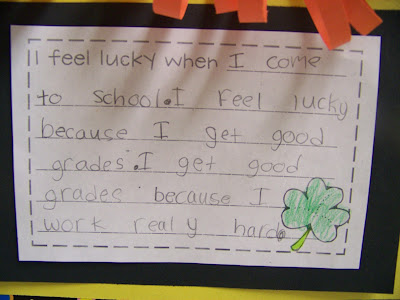 I feel lucky when I come
to school.I Feel lucky
because I get good
grades.I get good
grades because I
work realy hard.